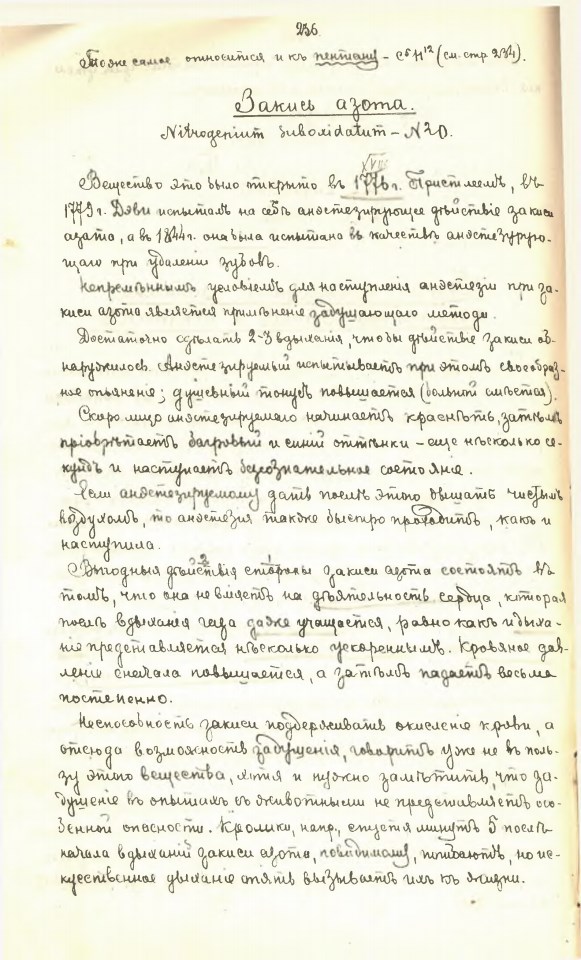 256
Тоже самое относится и къ пентану – C5H12 (см. стр 234).
Закись азота.
Nitrogenium suboxidatum – N2O.
VIII
Вещество это было ткрыто въ 1776 г. Пристлеемъ, въ
1779 г. Дэви испыталъ на себѣ анэстезирующее дѣйствіе закиси
азота, а въ 1844 г. она была испытана въ качествѣ анэстезирую-
щаго при удаленіи зубовъ.
Непремѣннымъ условіемъ для наступленія анэстезіи при за-
киси азота является примѣненіе задушающаго метода.
Достаточно сдѣлать 2-3 вдыханія, чтобы дѣйствіе закиси об-
наружилось. Анэстезируемый испытываетъ при этомъ своеобраз-
ное опьянение; душевный тонусъ повышается (больной смѣется).
Скоро лицо анэстезируемаго начинаетъ краснѣть, затѣмъ
пріобрѣтаетъ багровый и синій оттѣнки – еще нѣсколько се-
кундъ и наступаетъ безсознательное состояніе.
Если анэстезируемому дать послѣ этого дышать чистымъ
воздухомъ, то анэстезія также быстро проходитъ, какъ и
наступила.
Выгодныя дѣйствія 2 стороны 1 закиси азота состоятъ въ
томъ, что она не вліяетъ на дѣятельность сердца, которая
послѣ вдыханія газа даже учащается, равно какъ и дыха-
ніе представляется нѣсколько ускореннымъ. Кровяное дав-
леніе сначала повышается, а затѣмъ падаетъ весьма
постепенно.
Неспособность закиси поддерживать окисленіе крови, а
отсюда возможность задушенія, говоритъ уже не въ поль-
зу этого вещества, хотя и нужно замѣтить, что за-
душеніе въ опытахъ съ животными не представляетъ осо-
бенной опасности. Кролики, напр., спустя минутъ 5 послѣ
начала вдыханій закиси азота, повидимому, погибаютъ, но ис-
кусственное дыханіе опять вызываетъ ихъ къ жизни.